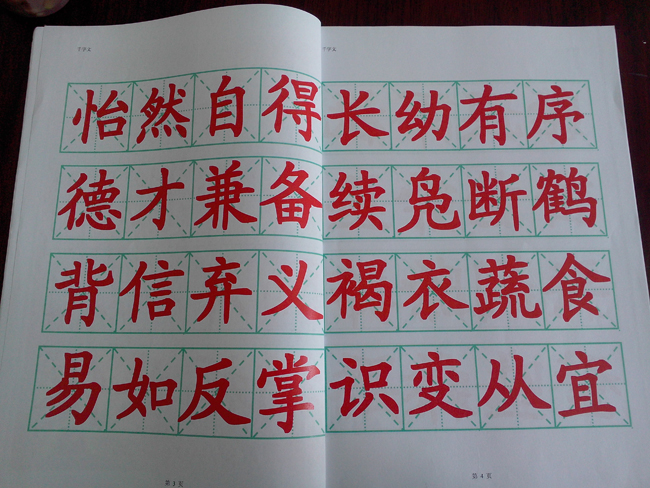 千字文
千字文
怡然自得长幼有序
德才兼备续凫断鹤
背信弃义褐衣蔬食
易如反掌识变从宜
第3页
第4页